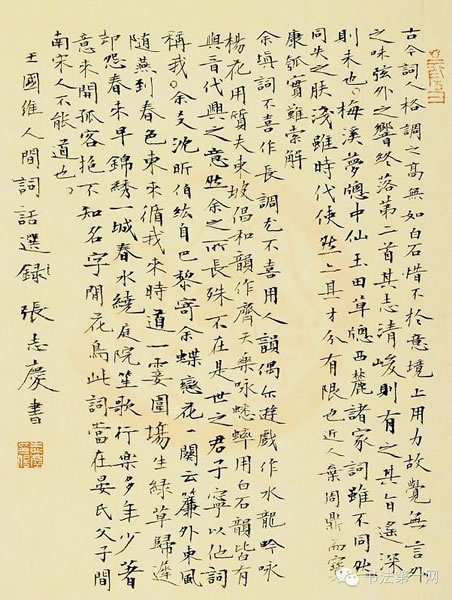 古今詞人格調之高無如白石惜不於意境上用力故覺無言外
之味弦外之響終落第二首其志清峻則有之其旨遙深
則未也。梅溪夢牕中仙玉田草牕西麓諸家詞雖不同然
同失之膚淺雖時代使然其才分有限也近人棄周鼎而寶
康瓠實難索解
余填詞不喜作長調尤不喜用人韻偶尔遊戲作水龍吟咏
楊花用質夫東坡倡和韻作齊天樂咏蟋蟀用白石韻皆有
與晉代興之意然余之所長殊不在是世之君子寧以他詞
稱我。余友沈昕伯紘自巴黎寄余蝶戀花一闋云簾外東風
隨燕到春色東來循我來時道一霎圍場生綠草歸遲
却怨春來早錦綉一城春水繞庭院笙歌行樂多年少著
意來開孤客抱不知名字閒花鳥此詞當在晏氏父子間
南宋人不能道也。
王國維人間詞話選録 張志慶書
书法第一网